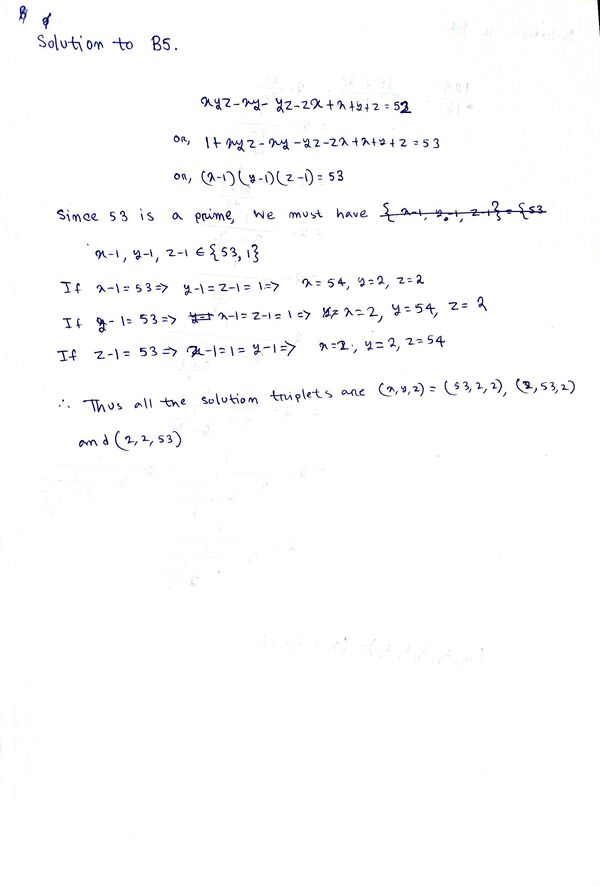 Solution to B5.
xyz-xy-yz-zx+x+y+z=52
or, 1+xyz-xy-yz-zx+x+y+z=53
or, (x-1)(y-1)(z-1)=53
Since 53 is a prime, we must have {x-1, y-1, z-1}={53
x-1, y-1, z-1 ∈ {53, 1}
If x-1=53 => y-1=z-1=1 => x=54, y=2, z=2
If y-1=53 => y-1 x-1=z-1=1 => y= x=2, y=54, z=2
If z-1=53 => x-1=1=y-1 => x=2, y=2, z=54
∴ Thus all the solution triplets are (x,y,z)=(53,2,2), (2,53,2)
and (2,2,53)